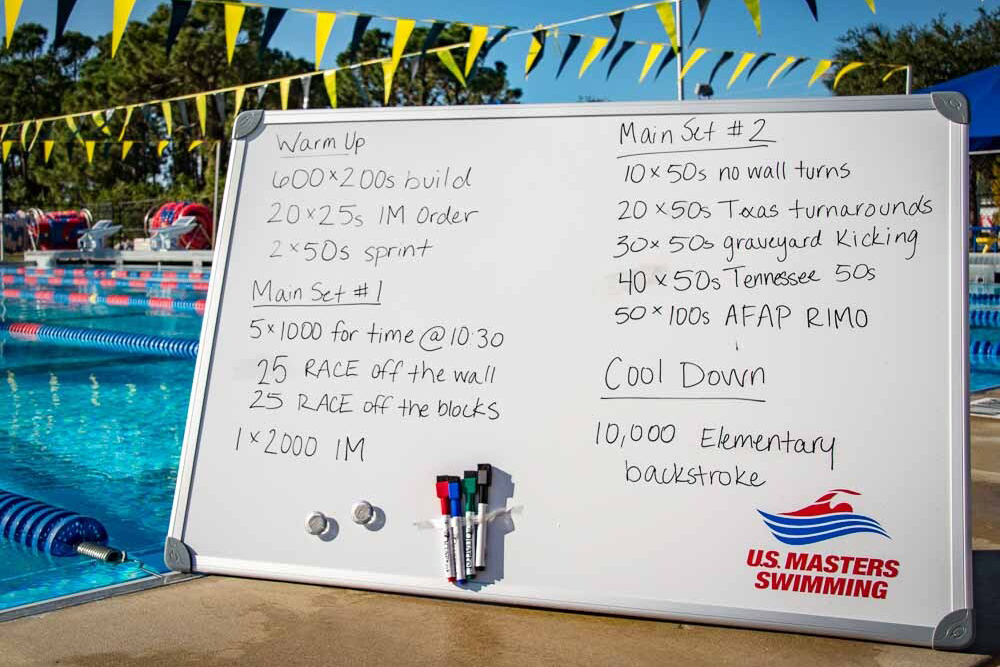 Warm Up
600×200s build
20×25s IM Order
2×50s sprint
Main Set #1
5×1000 for time @ 10:30
25 RACE off the wall
25 RACE off the blocks
1×2000 IM
Main Set #2
10×50s no wall turns
20×50s Texas turnarounds
30×50s graveyard Kicking
40×50s Tennessee 50s
50×100s AFAP RIMO
Cool Down
10,000 Elementary
backstroke
U.S. MASTERS
SWIMMING